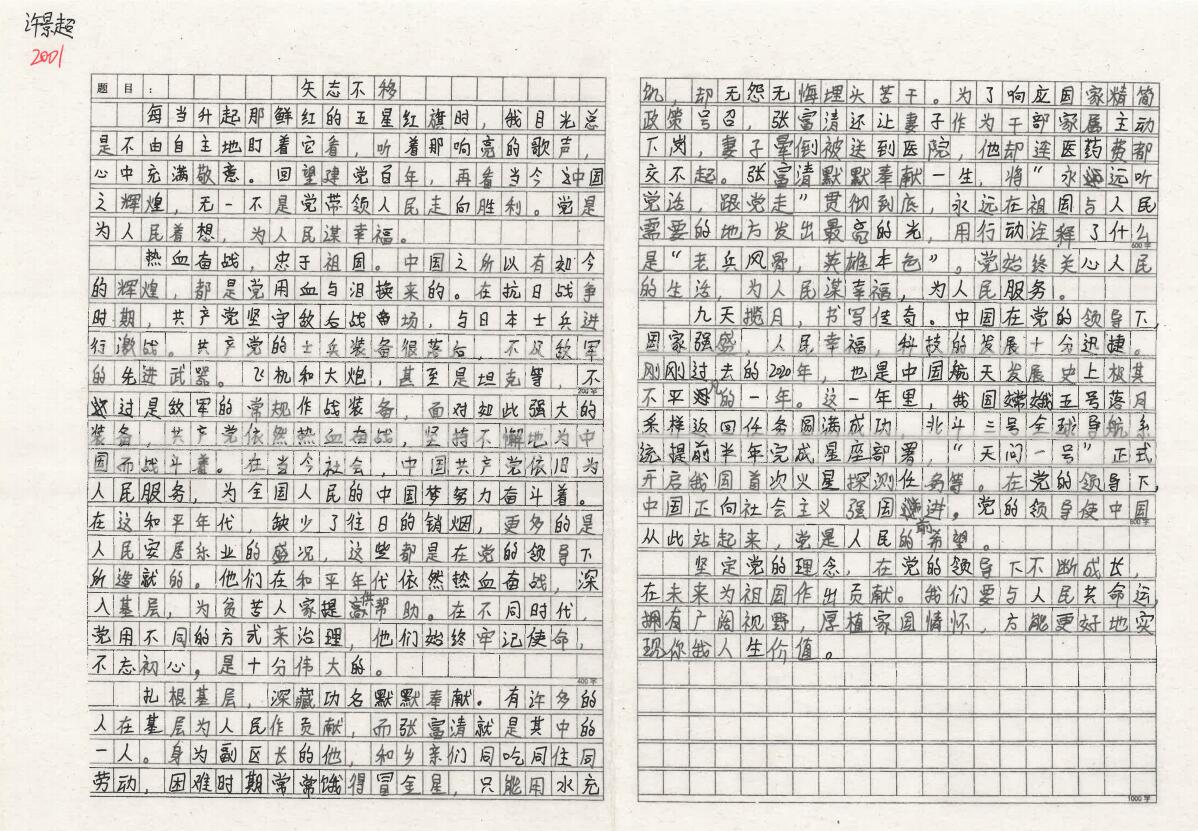 许景超
2001
题目：
矢志不移
每当升起那鲜红的五星红旗时，我目光总
是不由自主地盯着它看，听着那响亮的歌声，
心中充满敬意。回望建党百年，再看当今中国
之辉煌，无一不是党带领人民走向胜利。党是
为人民着想，为人民谋幸福。
热血奋战，忠于祖国。中国之所以有如今
的辉煌，都是党用血与泪换来的。在抗日战争
时期，共产党坚守敌后战场，与日本士兵进
行激战。共产党的士兵装备很落后，不及敌军
的先进武器。飞机和大炮，甚至是坦克等，不
200字
过是敌军的常规作战装备，面对如此强大的
装备，共产党依然热血奋战，坚持不懈地为中
国而战斗着。在当今社会，中国共产党依旧为
人民服务，为全国人民的中国梦努力奋斗着。
在这和平年代，缺少了往日的销烟，更多的是
人民安居乐业的盛况，这些都是在党的领导下
所造就的。他们在和平年代依然热血奋战，深
入基层，为贫苦人家提供帮助。在不同时代，
党用不同的方式来治理，他们始终牢记使命，
不忘初心，是十分伟大的。
400字
扎根基层，深藏功名默默奉献。有许多的
人在基层为人民作贡献，而张富清就是其中的
一人。身为副区长的他，和乡亲们同吃同住同
劳动，困难时期常常饿得冒金星，只能用水充
饥，却无怨无悔埋头苦干。为了响应国家精简
政策号召，张富清还让妻子作为干部家属主动
下岗，妻子晕倒被送到医院，他却连医药费都
交不起。张富清默默奉献一生，将“永远听
党话，跟党走”贯彻到底，永远在祖国与人民
需要的地方发出最亮的光，用行动诠释了什么
600字
是“老兵风骨，英雄本色”。党始终关心人民
的生活，为人民谋幸福，为人民服务。
九天揽月，书写传奇。中国在党的领导下，
国家强盛，人民幸福，科技的发展十分迅捷。
刚刚过去的2020年，也是中国航天发展史上极其
不平凡的一年。这一年里，我国嫦娥五号落月
采样返回任务圆满成功，北斗三号全球导航系
统提前半年完成星座部署，“天问一号”正式
开启我国首次火星探测任务等。在党的领导下，
中国正向社会主义强国前进。党的领导使中国
800字
从此站起来，党是人民的希望。
坚定党的理念，在党的领导下不断成长，
在未来为祖国作出贡献。我们要与人民共命运，
拥有广阔视野，厚植家国情怀，方能更好地实
现你我人生价值。
1000字